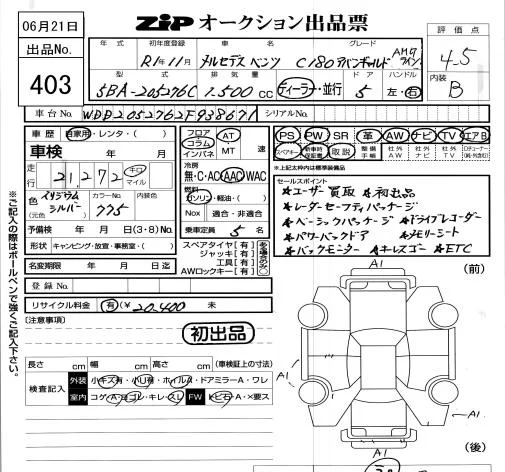 06月21日
出品No.
403
ZIP オークション出品票
年式 初年度登録 車名 グレード
R1年11月 メルセデスベンツ C180アバンギャルド AMGライン
型式 排気量 ドア ハンドル
5BA-205276C 1,500 cc ディーラー・並行 5 左・右
評価点
4-5
内装
B
車台No. WDD2052762F938671 シリアルNo.
車歴 自家用・レンタ・( )
車検 年 月
走行 21,272 キロ マイル
色(元色) イリジウムシルバー カラーNo. 775 内装色
予備検 年 月 日(3・8)No.
形状 キャンピング・放宣・事務室・( )
名変期限 年 月 日迄
登録No.
リサイクル料金 有(¥20,400 未
フロア コラム インパネ AT MT 速
冷房 無・C・AC・AAC・WAC
燃料 ガソリン・軽油・( )
Nox 適合・非適合
乗車定員 5 名
スペアタイヤ[有]
ジャッキ[有]
工具[有]
AWロックキー[有]
PS PW SR 革 AW ナビ TV エアB
スペアキー 新車時保証書 取説 整備手帳 社外AW 社外ナビ 社外TV
※上記太枠内は標準装備品
セールスポイント
★ユーザー買取 ★初出品
★レーダーセーフティパッケージ
★ベーシックパッケージ ★ドライブレコーダー
★パワーバックドア ★メモリーシート
★バックモニター ★キーレスゴー ★ETC
※ご記入の際はボールペンで強くご記入下さい。
[注意事項]
初出品
長さ cm 幅 cm 高さ cm (車検証上の寸法)
検査記入 外装 小キズ有・小U有・ホイルキズ・ドアミラーA・ワレ
室内 コゲA・ヨゴレ・キレ・スレ FW トビ石・A・×要ス
(前)
A1
A1
A1
A1
(後)